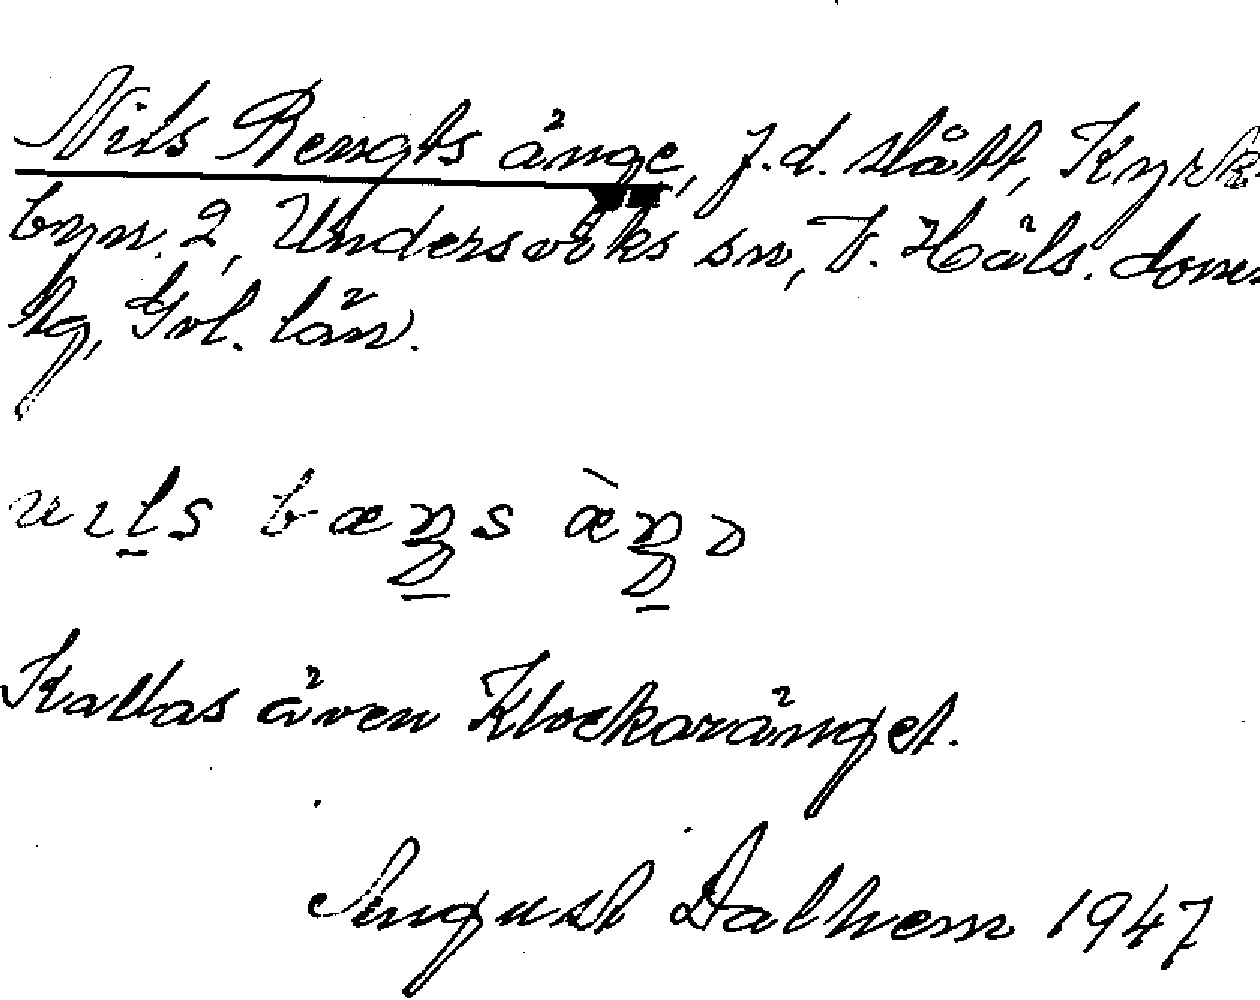 Nils Bengts änge, f.d. slått, Kyrk-
byn. 2, Undersviks sn, V. Häls. doms.
tg, Gvl. län.
Kallas även Klockaränget.
August Dalhem 1947